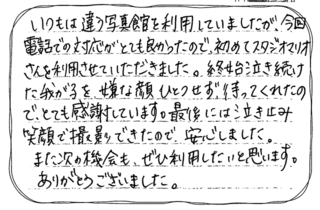 いつもは違う写真館を利用していましたが、今回
電話での対応がとても良かったので、初めてスタジオマリオ
さんを利用させていただきました。終始泣き続け
た我が子を、嫌な顔ひとつせず、待ってくれたの
で、とても感謝しています。最後には泣き止み
笑顔で撮影できたので、安心しました。
また次の機会も、ぜひ利用したいと思います。
ありがとうございました。